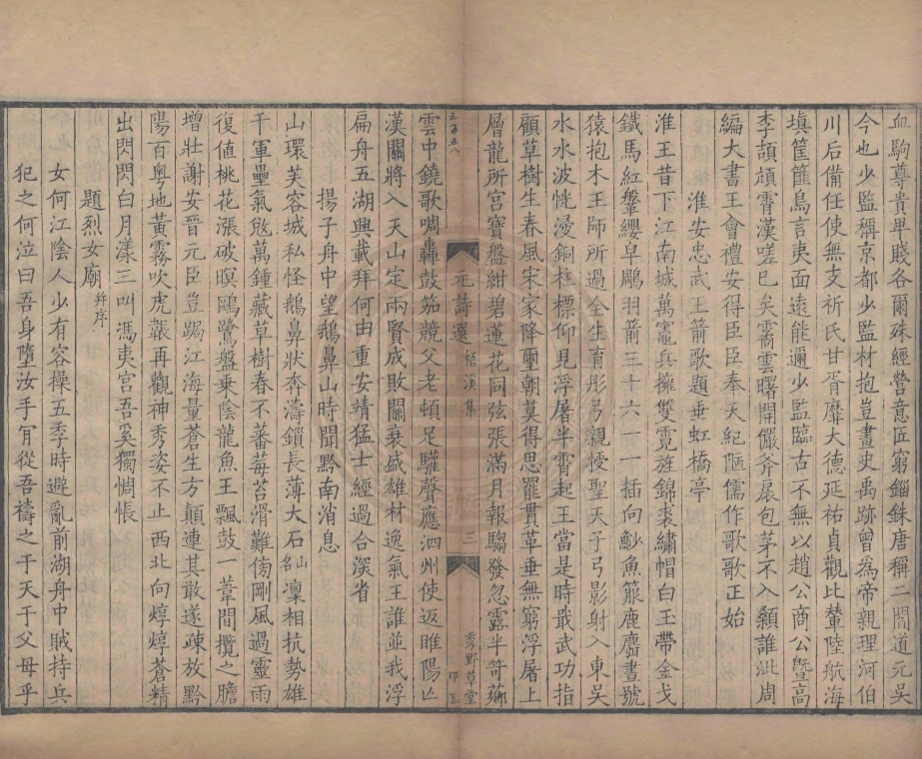 血駒尊貴畢賤各爾殊經營意匠窮錙銖唐稱二閻道元吳
今也少監稱京都少監材抱豈畫史禹跡曾為帝親理河伯
川后備任使無支祈氏甘胥靡大德延祐貞觀比輦陸航海
填筐篚鳥言夷面遠能邇少監臨古不無以趙公商公暨高
李頡頏霄漢嗟已矣霱雲曙開儼斧扆包茅不入纇誰泚周
編大書王會禮安得臣臣奉天紀陋儒作歌歌正始
淮安忠武王箭歌題垂虹橋亭
淮王昔下江南城萬竈兵擁雙霓旌錦裘繡帽白玉帶金戈
鐵馬紅鞶纓皁鵰羽箭三十六一一插向魦魚箙鹿麝畫號
猿抱木王師所過全生育彤弓親授聖天子弓影射入東吳
水水波恍漫銅柱標仰見浮屠半霄起王當是時戢武功指
顧草樹生春風宋家降璽朝莫得思罷貫革垂無窮浮屠上
層龍所宮寶盤紺碧蓮花同弦張滿月報騶發忽露半笴薌
元詩選 梧溪集 三 秀野草堂
雲中鐃歌啁轟鼓笳競父老頓足驩聲應泗州使返睢陽亾
漢關將入天山定兩賢成敗關衰盛雄材逸氣王誰並我浮
扁舟五湖興載拜何由重安靖猛士經過合深省
揚子舟中望鵝鼻山時聞黔南消息
山環芙容城私怪鵝鼻狀奔濤鎖長薄大石山名凜相抗勢雄
千軍壘氣慾萬鍾藏草樹春不蕃莓苔滑難傍剛風過靈雨
復值桃花漲破暝鷗鷺盤乘陰龍魚王飄鼓一葦間攬之膽
增壯謝安晉元臣豈跼江海量蒼生方顛連其敢遂疎放黔
陽百粵地黃霧吹虎韔再觀神秀姿不止西北向焞焞蒼精
出閃閃白月漾三叫馮夷宮吾奚獨惆悵
題烈女廟 并序
女何江陰人少有容操五季時避亂前湖舟中賊持兵
犯之何泣曰吾身墮汝手肎從吾禱之于天于父母乎